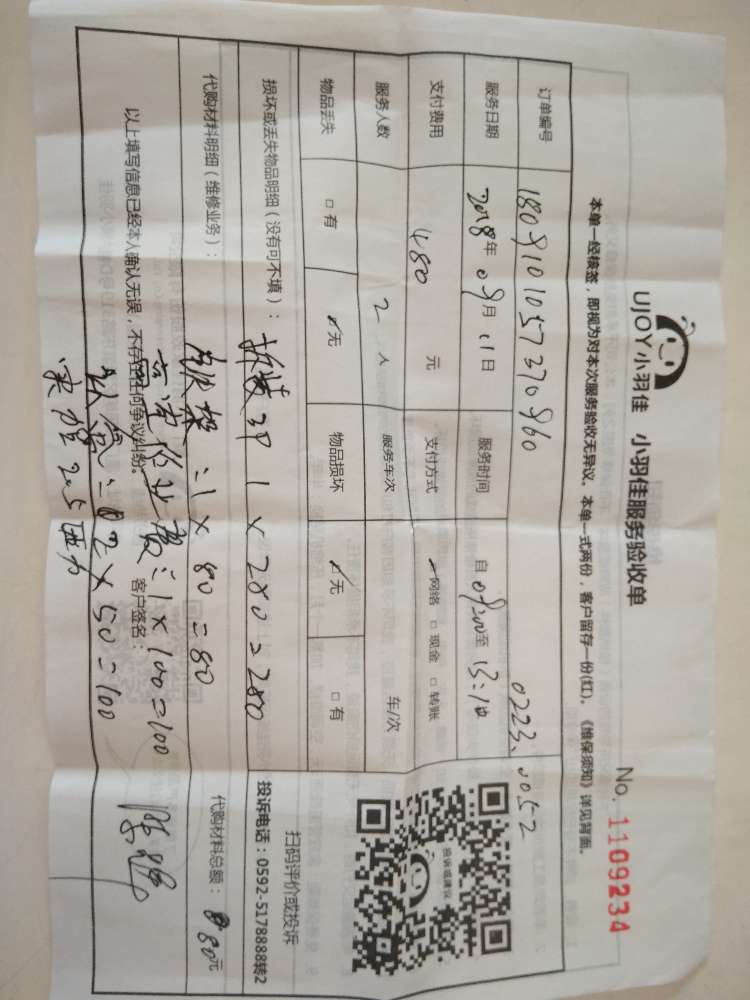 UJOY小羽佳 小羽佳服务验收单
No. 1109234
本单一经核签，即视为对本次服务验收无异议。本单一式两份，客户留存一份(红)。《维保须知》详见背面。
0223.0052
订单编号 1809101057370960
服务日期 2018年09月11日 服务时间 自09:00至13:10
支付费用 480 元 支付方式 ☑网络 □现金 □转账
服务人数 2 人 服务车次 车/次
物品丢失 □有 ☑无 物品损坏 ☑无 □有
投诉或建议
扫码评价或投诉
投诉电话：0592-5178888转2
损坏或丢失物品明细（没有可不填）：
拆装3P 1×280=280
代购材料明细（维修业务）：
代购材料总额： 80元
铁架=1×80=80
高空作业费=1×100=100
以上填写信息已经本人确认无误，不存在任何争议纠纷。 客户签名：
=2×50=100